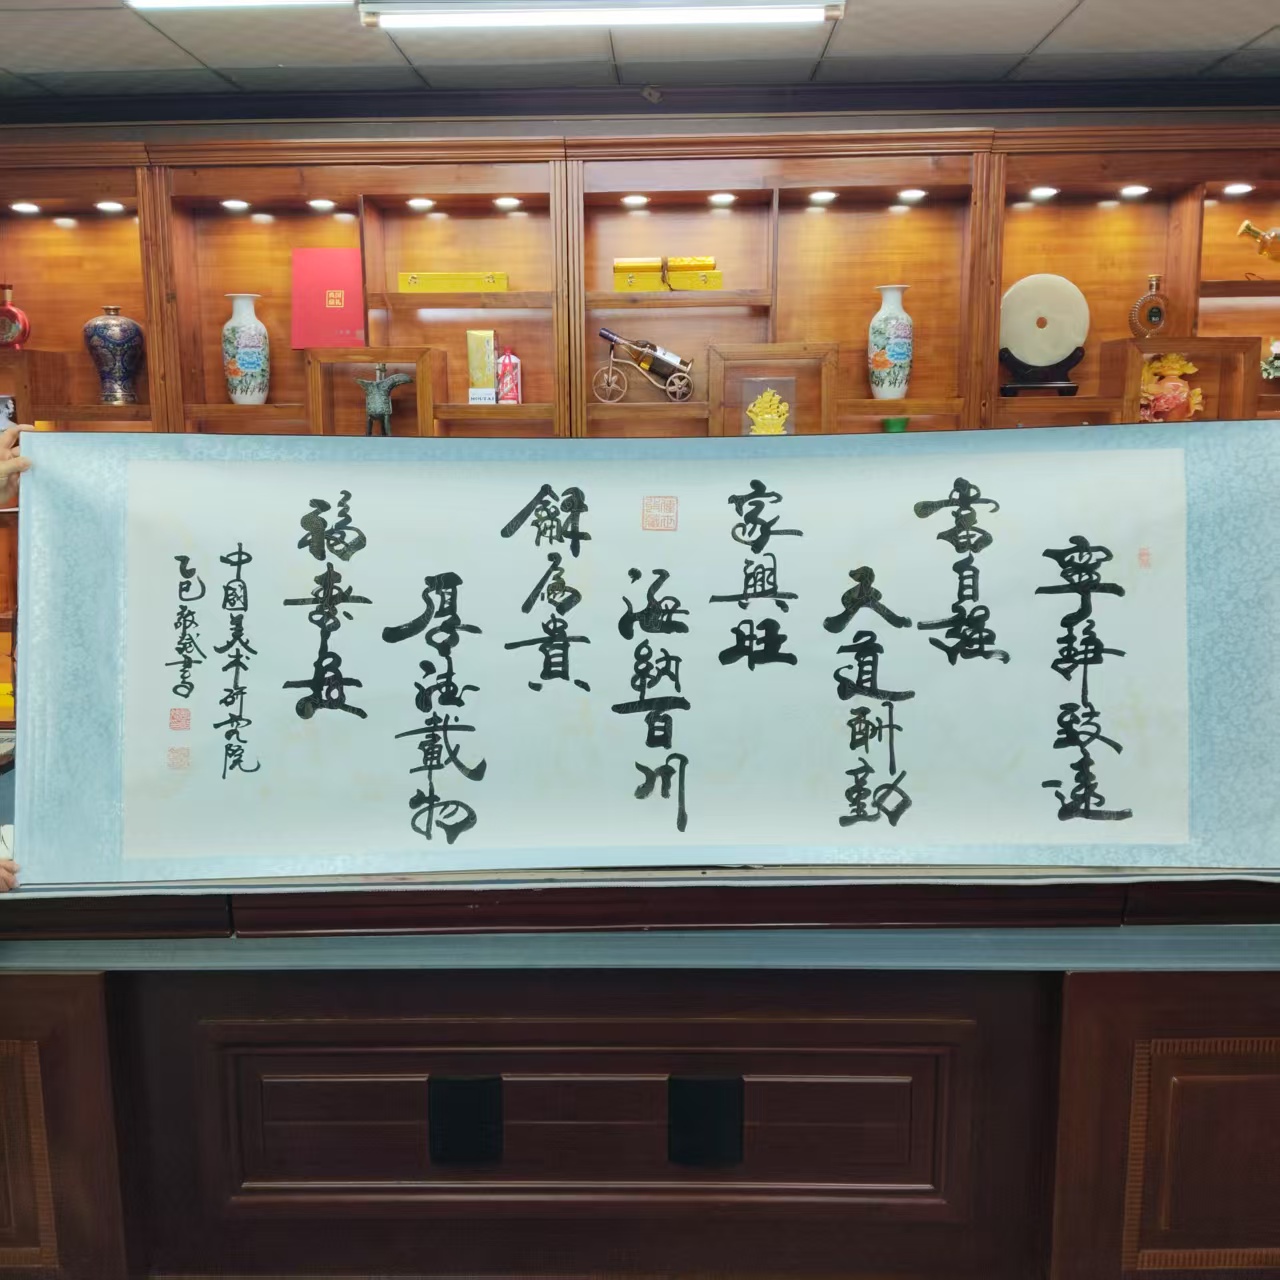 寧静致遠
當自強
天道酬勤
家興旺
海納百川
龢為貴
厚德載物
福壽
中國美术研究院
乙巳書